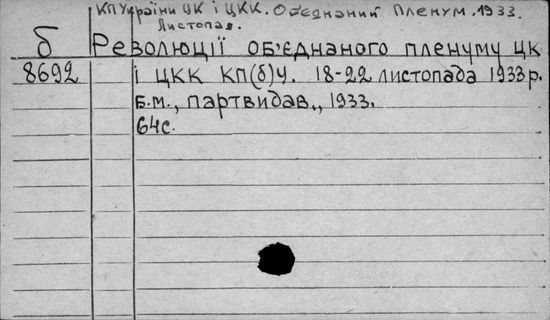 КП України ЦК і ЦКК. Об'єднаний Пленум. 1933.
Листопад.
б Резолюції об'єднаного пленуму ЦК
8692 і ЦКК КП(б)У. 18-22 листопада 1933 р.
Б.М., партвидав., 1933.
64с.